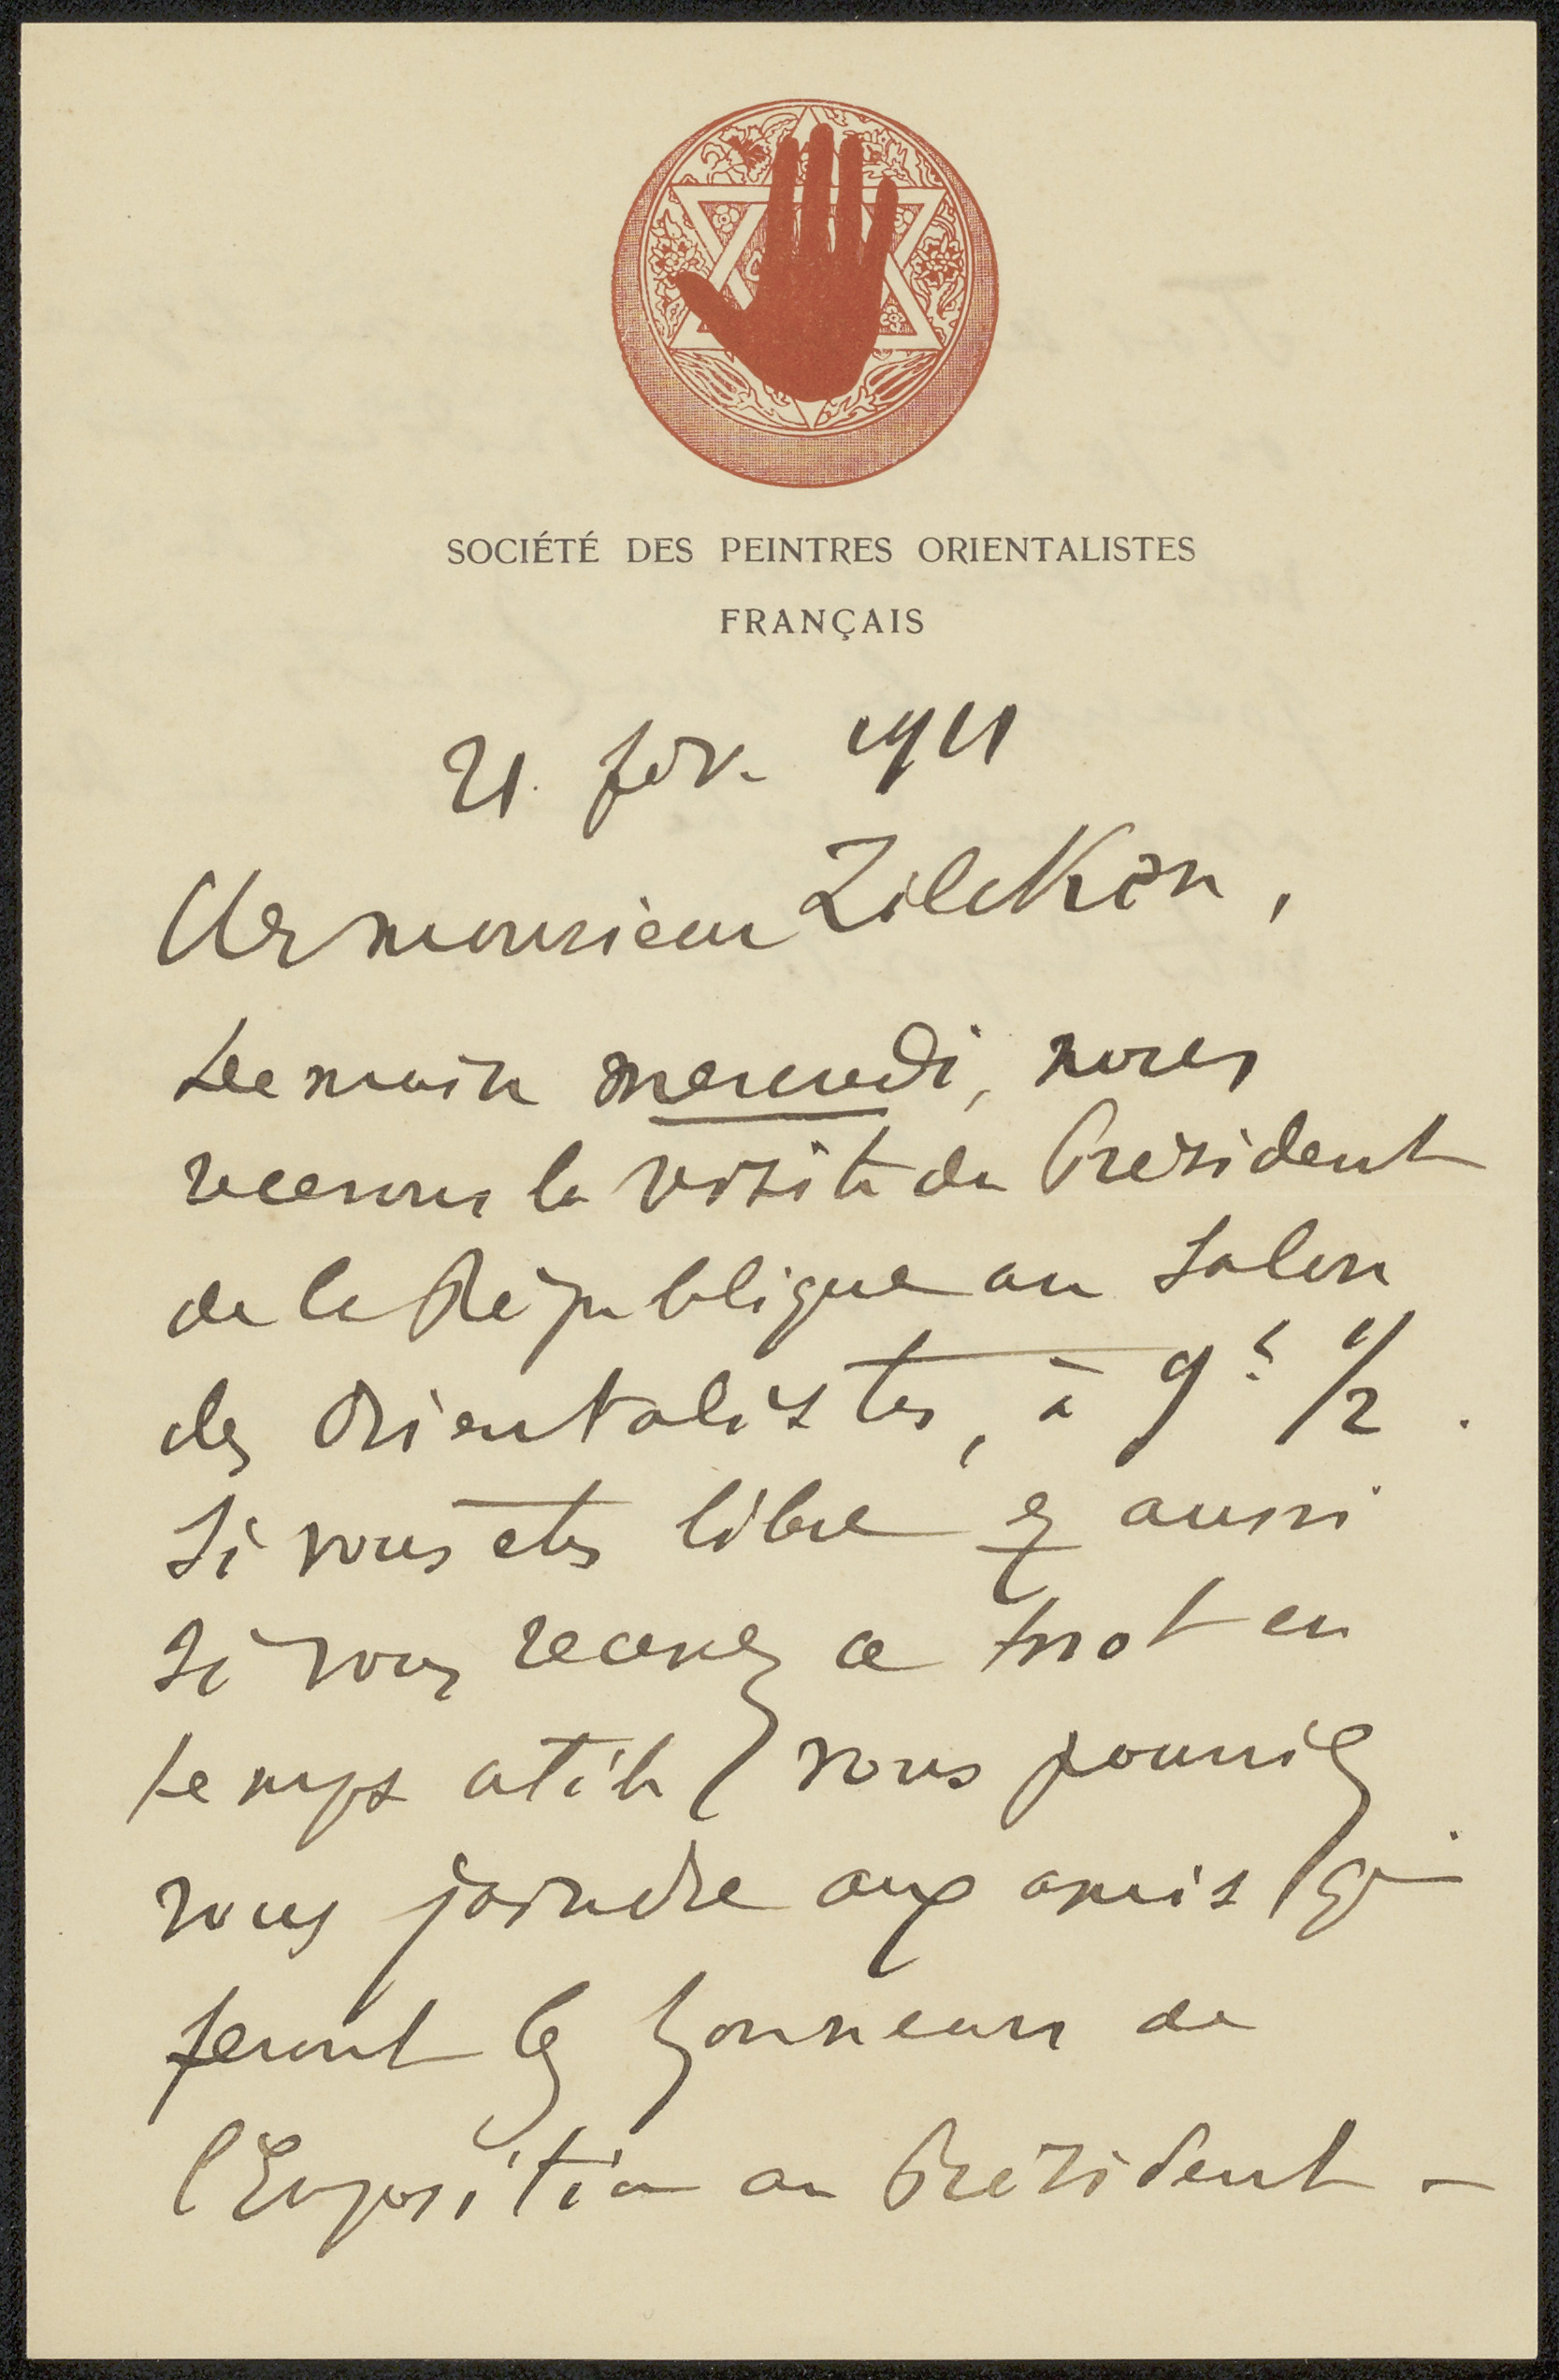 SOCIÉTÉ DES PEINTRES ORIENTALISTES
FRANÇAIS
21. fév. 1911
Cher monsieur Zilcken,
Demain mercredi, nous
recevons la visite du Président
de la République au Salon
des Orientalistes, à 9h 1/2.
Si vous êtes libre & aussi
si vous recevez ce mot en
temps utile vous pourriez
vous joindre aux amis qui
feront les honneurs de
l'Exposition au Président –